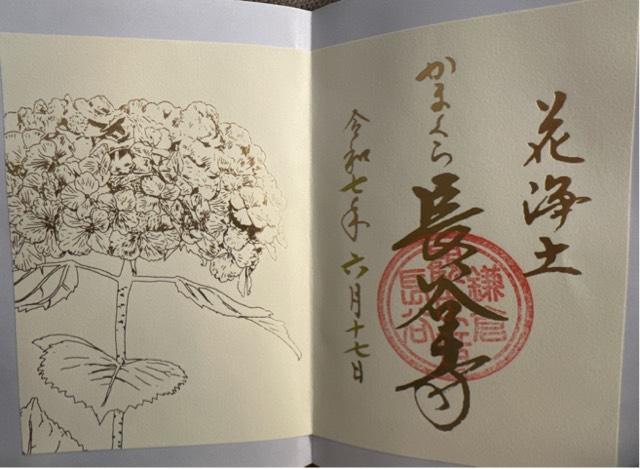 花浄土
かまくら
長谷寺
令和七年六月十七日